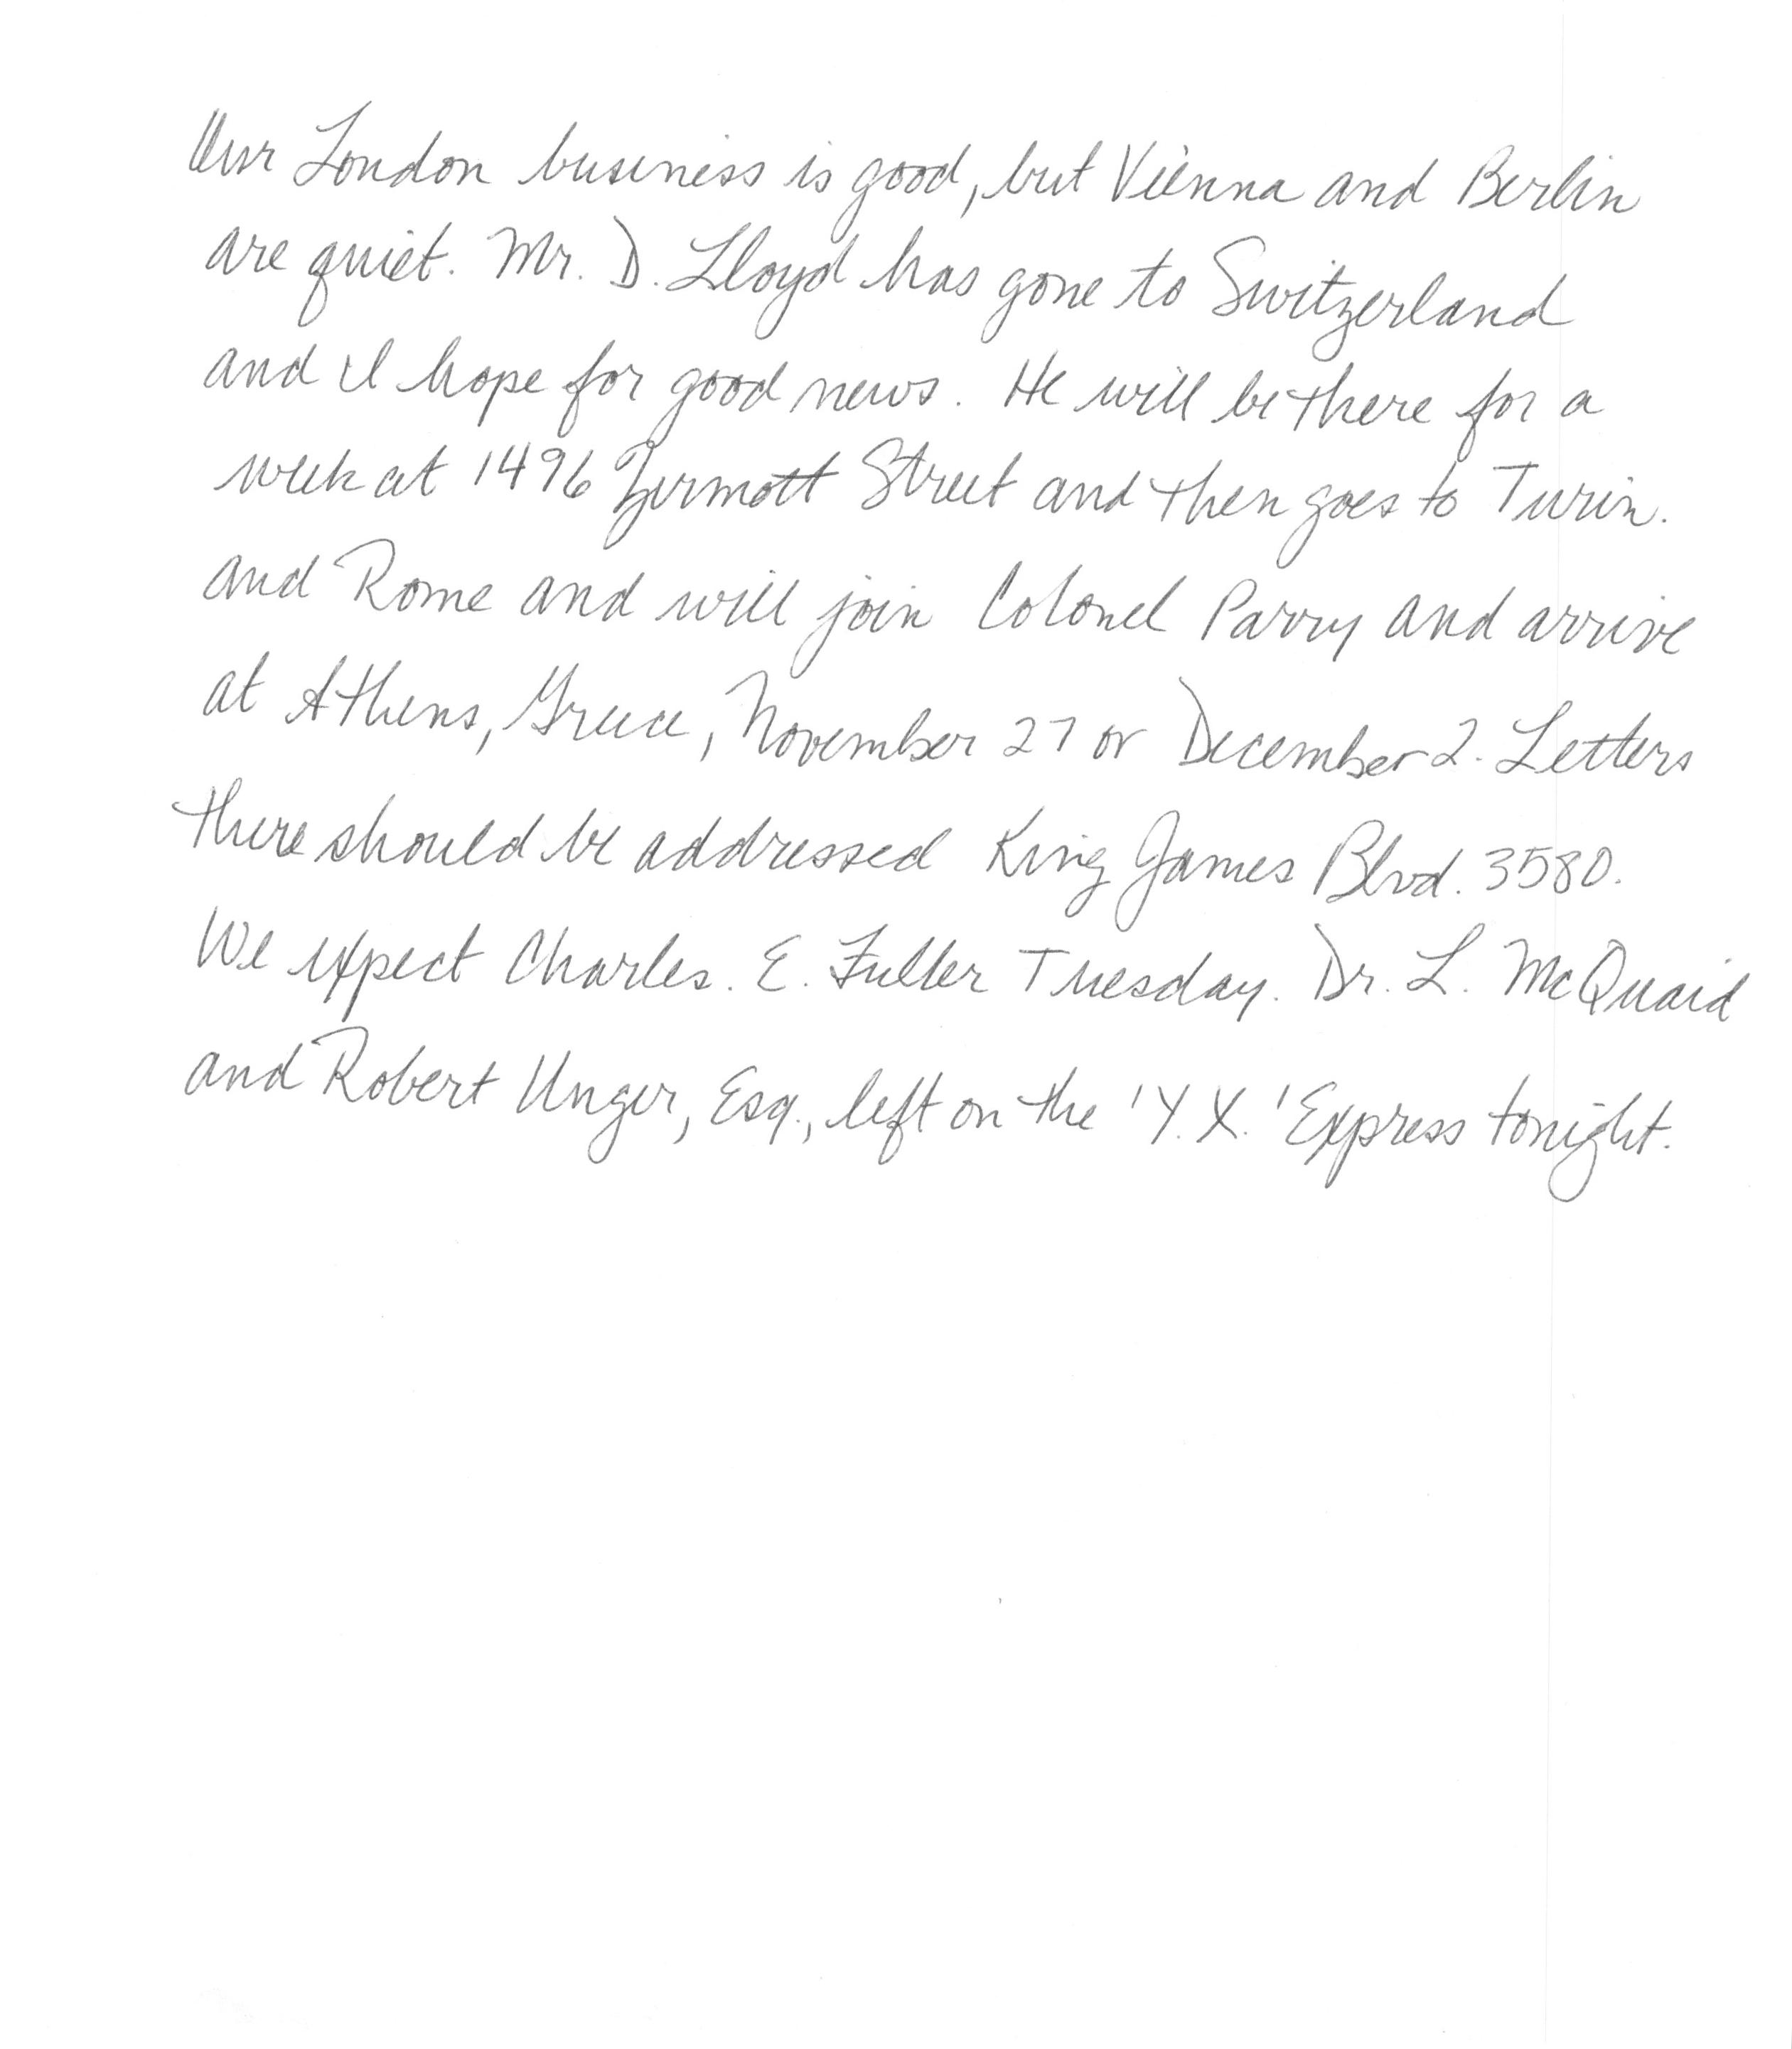 Our London business is good, but Vienna and Berlin
are quiet. Mr. D. Lloyd has gone to Switzerland
and I hope for good news. He will be there for a
week at 1496 Zermott Street and then goes to Turin.
and Rome and will join Colonel Parry and arrive
at Athens, Greece, November 27 or December 2. Letters
there should be addressed King James Blvd. 3580.
We expect Charles. E. Fuller Tuesday. Dr. L. McQuaid
and Robert Unger, Esq., left on the 'Y.X.' Express tonight.